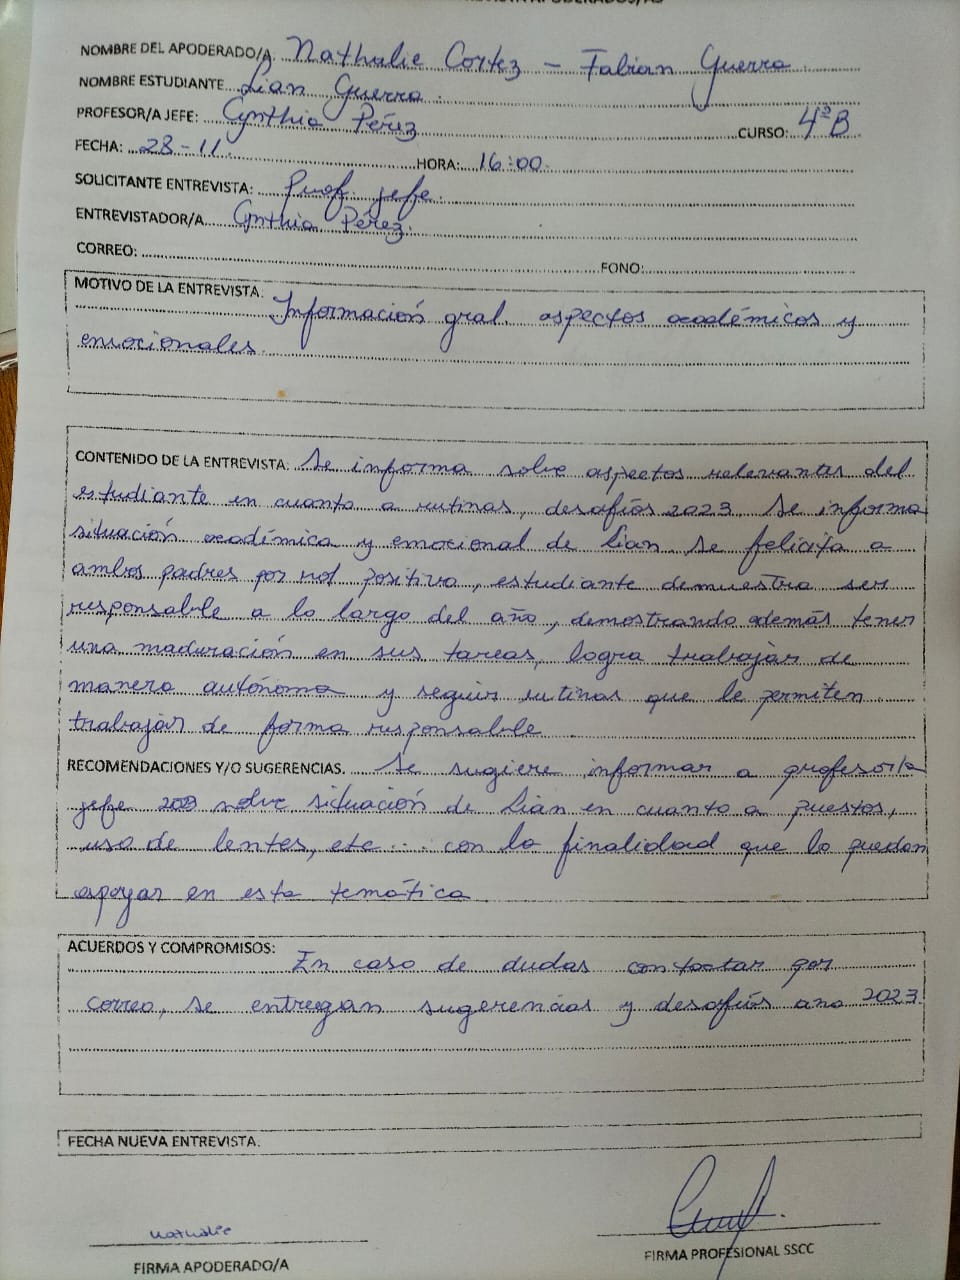 NOMBRE DEL APODERADO/A: Nathalie Cortez – Fabian Guerra
NOMBRE ESTUDIANTE Lian Guerra
PROFESOR/A JEFE: Cynthia Pérez CURSO: 4ºB
FECHA: 28-11 HORA: 16:00
SOLICITANTE ENTREVISTA: Prof. jefe.
ENTREVISTADOR/A Cynthia Pérez.
CORREO: FONO:
MOTIVO DE LA ENTREVISTA: Información gral. aspectos académicos y
emocionales
CONTENIDO DE LA ENTREVISTA: Se informa sobre aspectos relevantes del
estudiante en cuanto a rutinas, desafíos 2023. Se informa
situación académica y emocional de Lian, se felicita a
ambos padres por rol positivo, estudiante demuestra ser
responsable a lo largo del año, demostrando además tener
una maduración en sus tareas, logra trabajar de
manera autónoma y seguir rutinas que le permiten
trabajar de forma responsable
RECOMENDACIONES Y/O SUGERENCIAS. Se sugiere informar a profesor/a
jefe sobre situación de Lian en cuanto a puestos,
uso de lentes, etc... con la finalidad que lo puedan
apoyar en esta temática
ACUERDOS Y COMPROMISOS: En caso de dudas contactar por
correo, se entregan sugerencias y desafíos año 2023.
FECHA NUEVA ENTREVISTA.
Nathalie
FIRMA APODERADO/A FIRMA PROFESIONAL SSCC